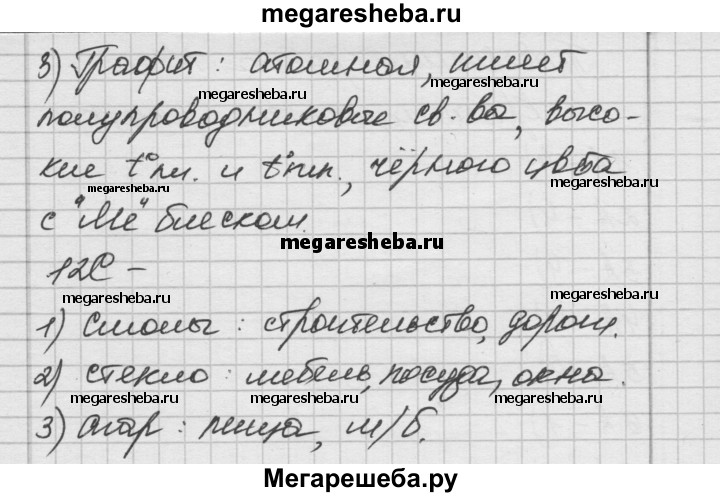 megaresheba.ru
3) Графит: атомная, имеет
megaresheba.ru megaresheba.ru
полупроводниковые св-ва, высо-
megaresheba.ru megaresheba.ru
кие t°пл. и t°кип., чёрного цвета
с "Ме" блеском.
megaresheba.ru
12С -
megaresheba.ru megaresheba.ru
1) Смолы: строительство, дороги.
2) стекло: мебель, посуда, окна.
megaresheba.ru megaresheba.ru
3) Агар: пища, м/б.
Мегарешеба.ру